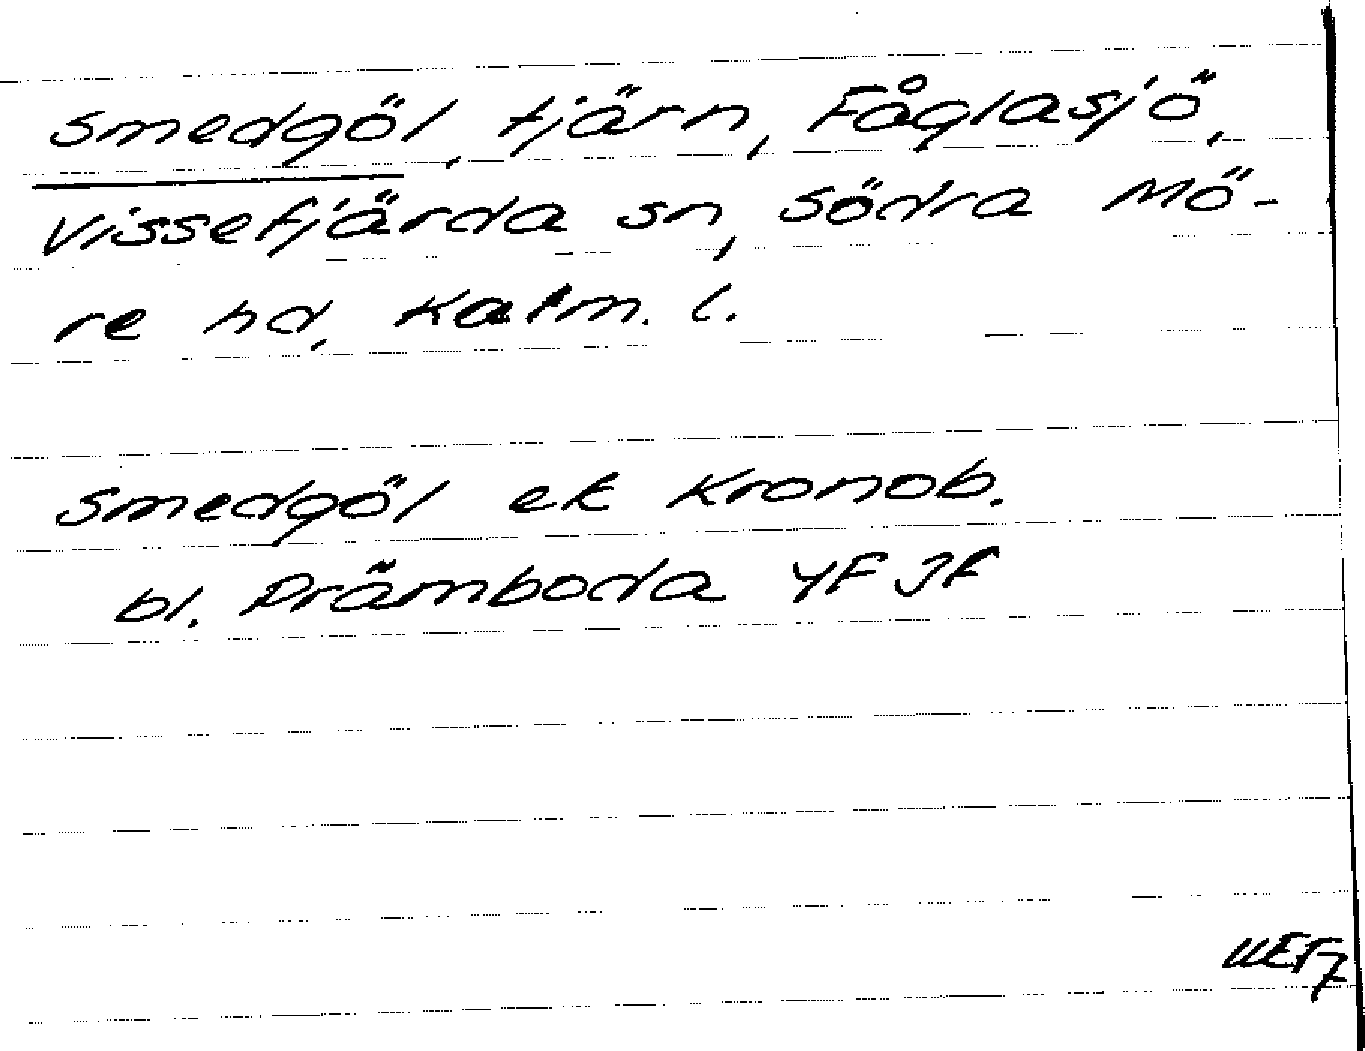 Smedgöl, tjärn, Fåglasjö,
Vissefjärda sn, Södra Mö-
re hd, Kalm. l.
Smedgöl ek Kronob.
bl. Prämboda YF JF